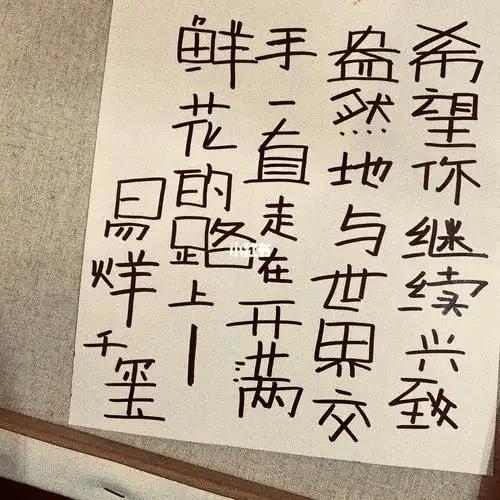 希望你继续兴致
盎然地与世界交
手一直走在开满
鲜花的路上｜
易烊千玺
小红书